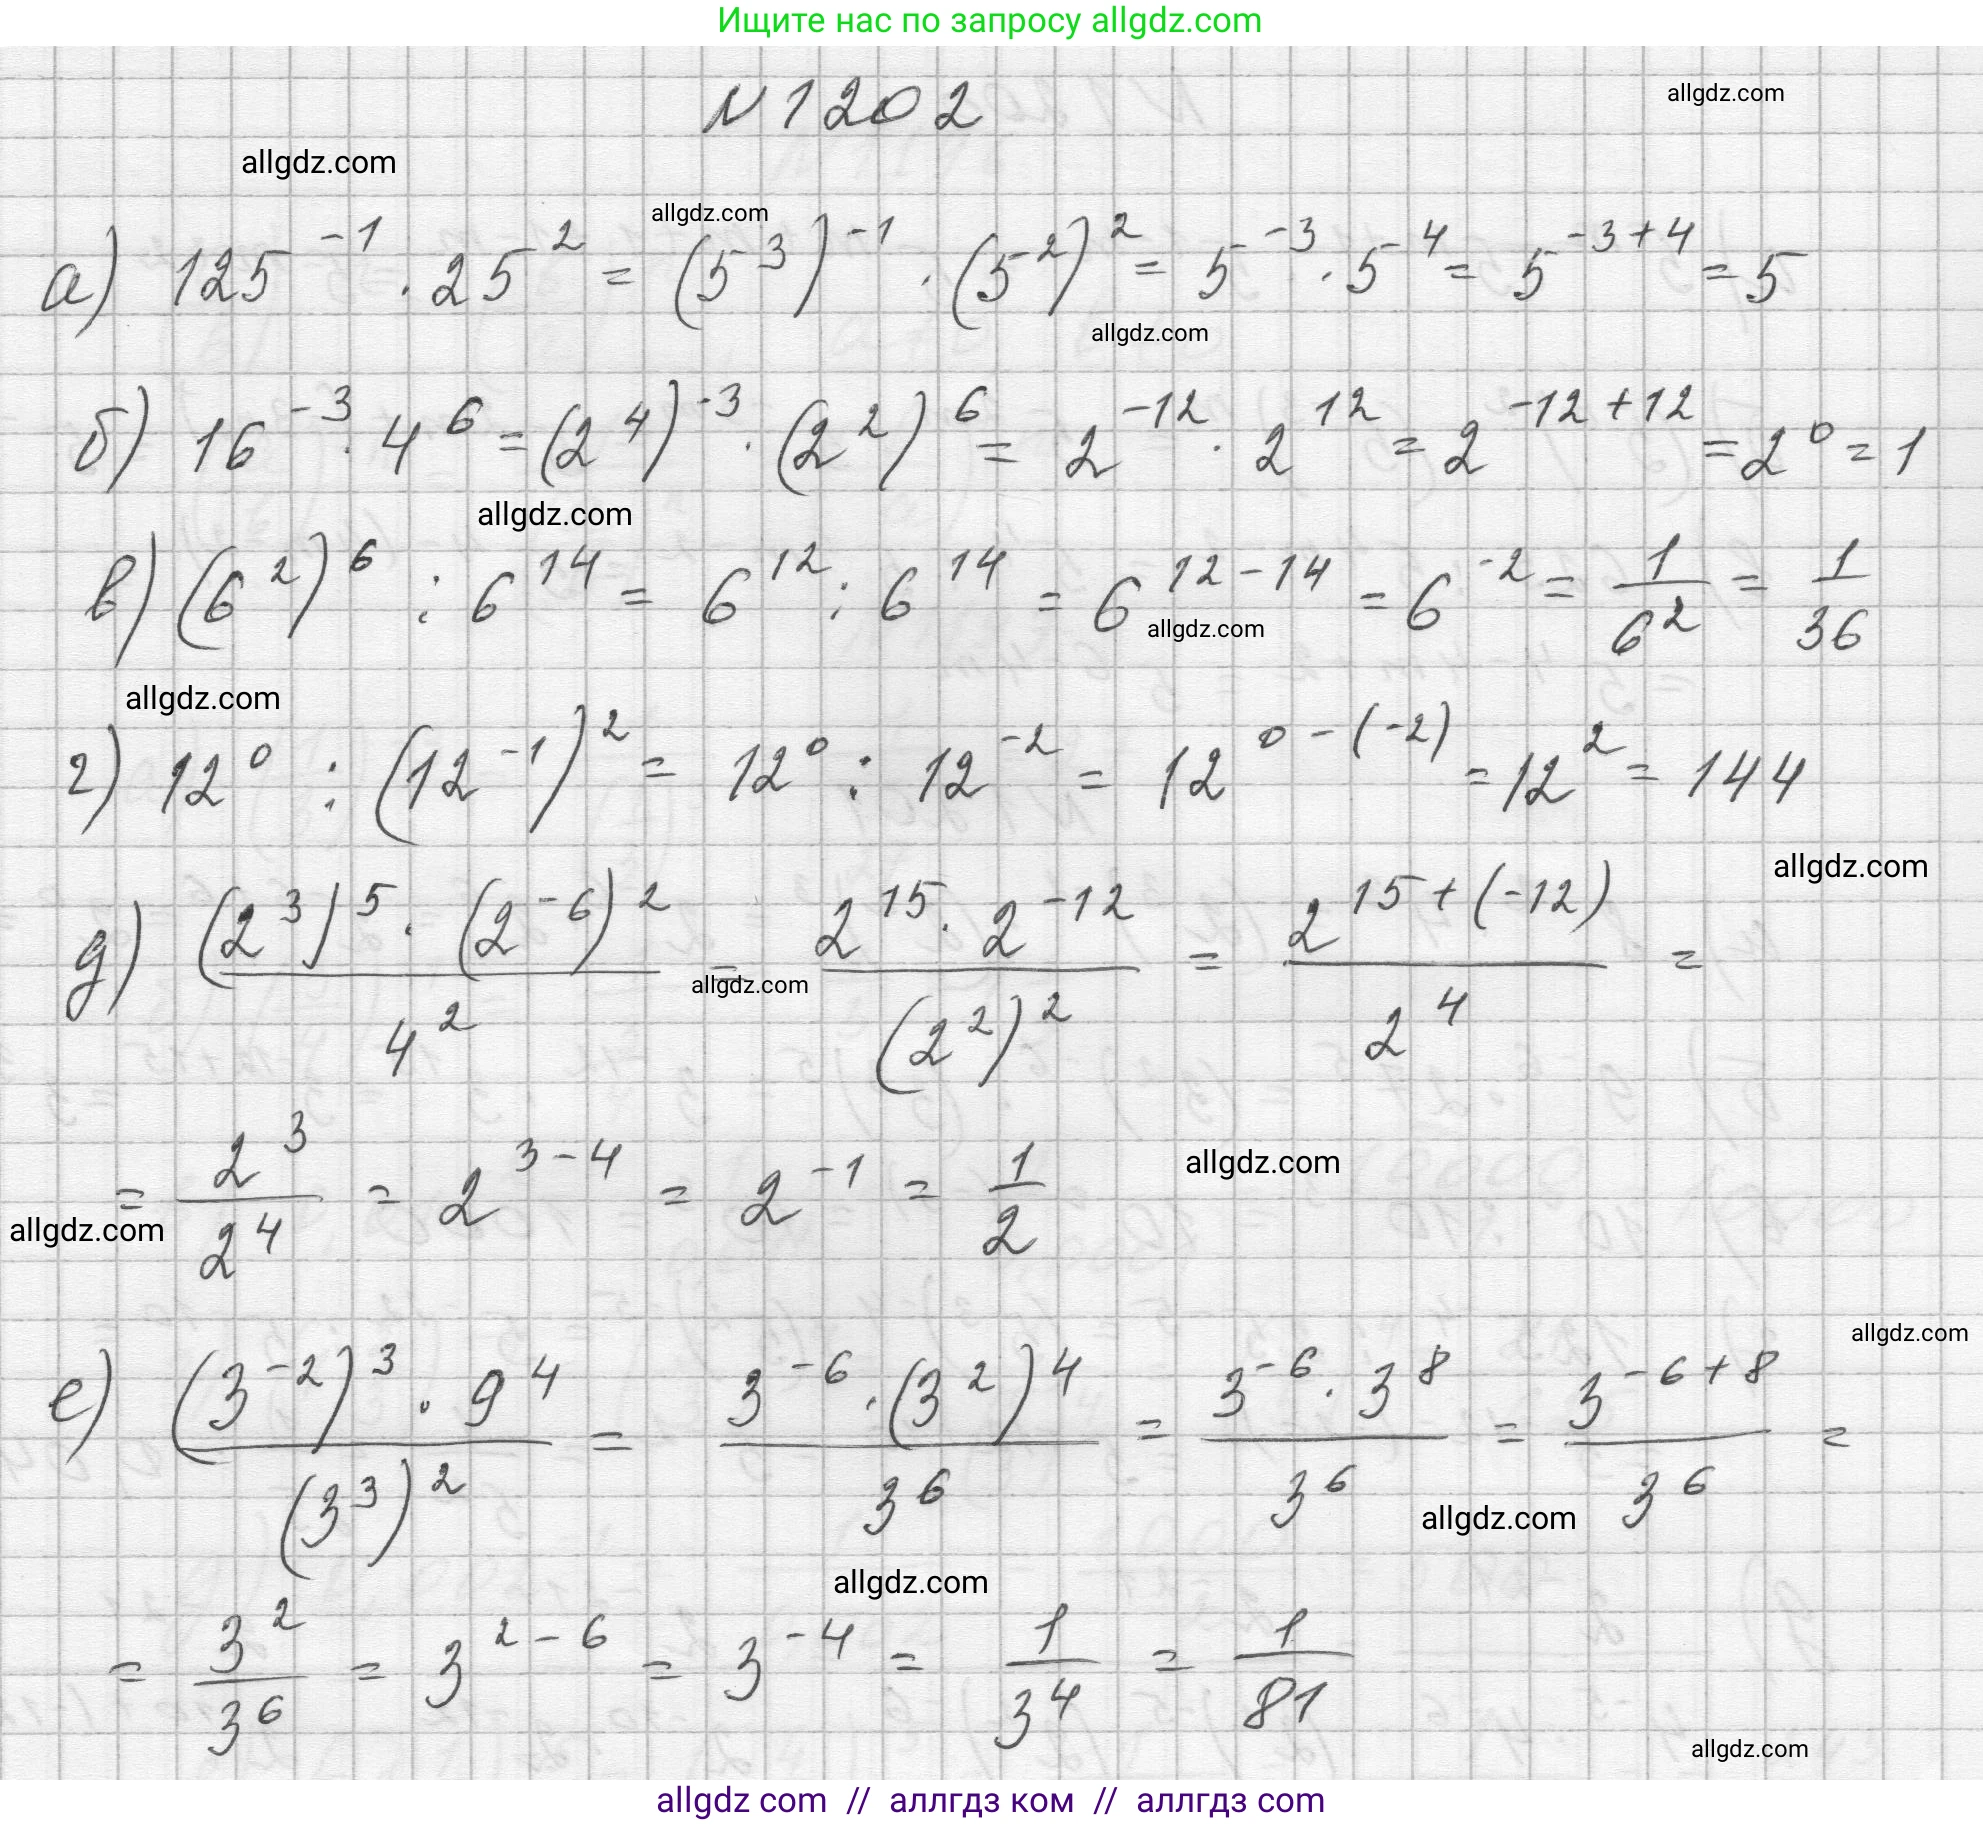 Ищите нас по запросу allgdz.com
N 1202
allgdz.com
allgdz.com
allgdz.com
а) 125^{-1} · 25^2 = (5^3)^{-1} · (5^2)^2 = 5^{-3} · 5^4 = 5^{-3+4} = 5
allgdz.com
б) 16^{-3} · 4^6 = (2^4)^{-3} · (2^2)^6 = 2^{-12} · 2^{12} = 2^{-12+12} = 2^0 = 1
allgdz.com
в) (6^2)^6 : 6^{14} = 6^{12} : 6^{14} = 6^{12-14} = 6^{-2} = \frac{1}{6^2} = \frac{1}{36}
allgdz.com
allgdz.com
г) 12^0 : (12^{-1})^2 = 12^0 : 12^{-2} = 12^{0-(-2)} = 12^2 = 144
allgdz.com
д) \frac{(2^3)^5 · (2^{-6})^2}{4^2} = \frac{2^{15} · 2^{-12}}{(2^2)^2} = \frac{2^{15+(-12)}}{2^4} =
allgdz.com
= \frac{2^3}{2^4} = 2^{3-4} = 2^{-1} = \frac{1}{2}
allgdz.com
allgdz.com
allgdz.com
е) \frac{(3^{-2})^3 · 9^4}{(3^3)^2} = \frac{3^{-6} · (3^2)^4}{3^6} = \frac{3^{-6} · 3^8}{3^6} = \frac{3^{-6+8}}{3^6} =
allgdz.com
allgdz.com
= \frac{3^2}{3^6} = 3^{2-6} = 3^{-4} = \frac{1}{3^4} = \frac{1}{81}
allgdz.com
allgdz com // аллгдз ком // аллгдз com